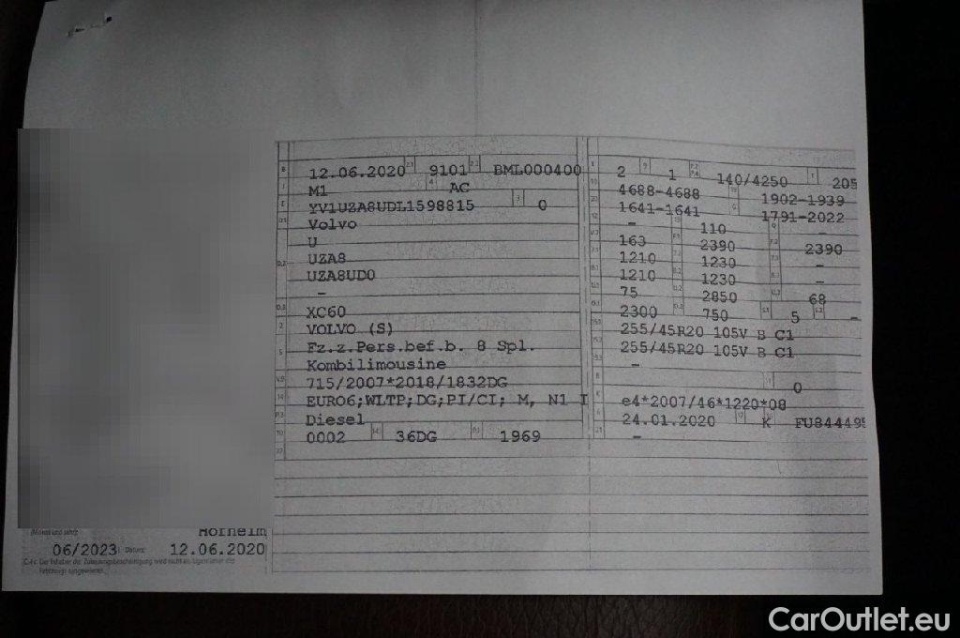 12.06.2020 9101 BML000400
M1 AC
YV1UZA8UDL1598815 0
Volvo
U
UZA8
UZA8UD0
-
XC60
VOLVO (S)
Fz.z.Pers.bef.b. 8 Spl.
Kombilimousine
715/2007*2018/1832DG
EURO6;WLTP;DG;PI/CI; M, N1 I
Diesel
0002 36DG 1969
2 1 140/4250 205
4688-4688 1902-1939
1641-1641 1791-2022
- 110 -
163 2390 2390
1210 1230 -
1210 1230 -
75 2850 68
2300 750 5 -
255/45R20 105V B C1
255/45R20 105V B C1
-
0
e4*2007/46*1220*08
24.01.2020 K FU84449
-
06/2023 12.06.2020
CarOutlet.eu